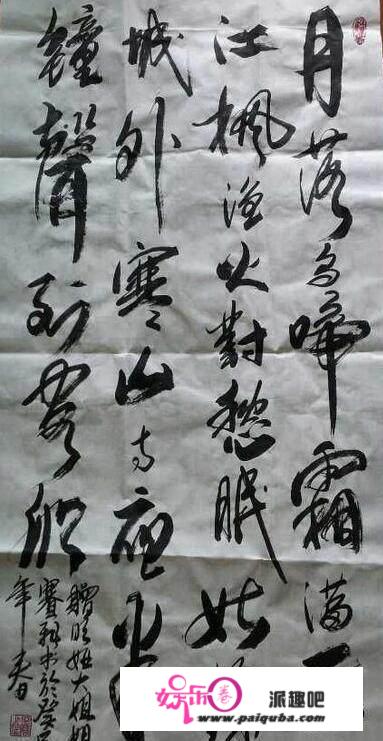 月落烏啼霜滿
江楓漁火對愁眠姑
城外寒山寺夜半
鐘聲到客船
大姐
書於癸
年春日
娱乐卷
派趣吧
www.paiquba.com